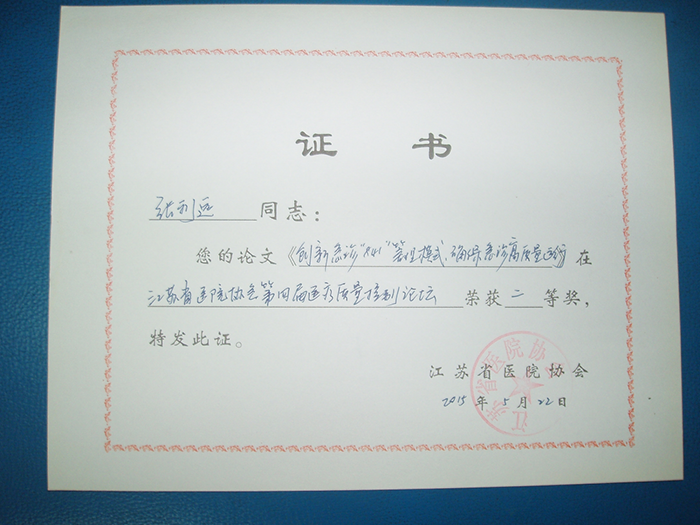 证 书
张利远 同志：
您的论文《创新急诊“ ”管理模式,确保急诊高质量运行 在
江苏省医院协会第四届医疗质量控制论坛 荣获 二 等奖，
特发此证。
江苏省医院协会
2015 年 5 月 22 日
江苏省医院协